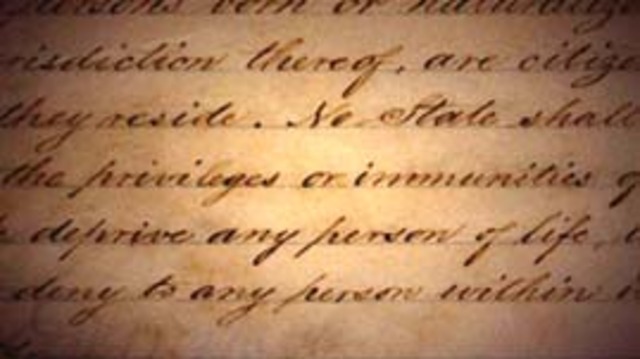 persons born or naturalize
risdiction thereof, are citize
they reside. No State shall
the privileges or immunities of
deprive any person of life,
deny to any person within